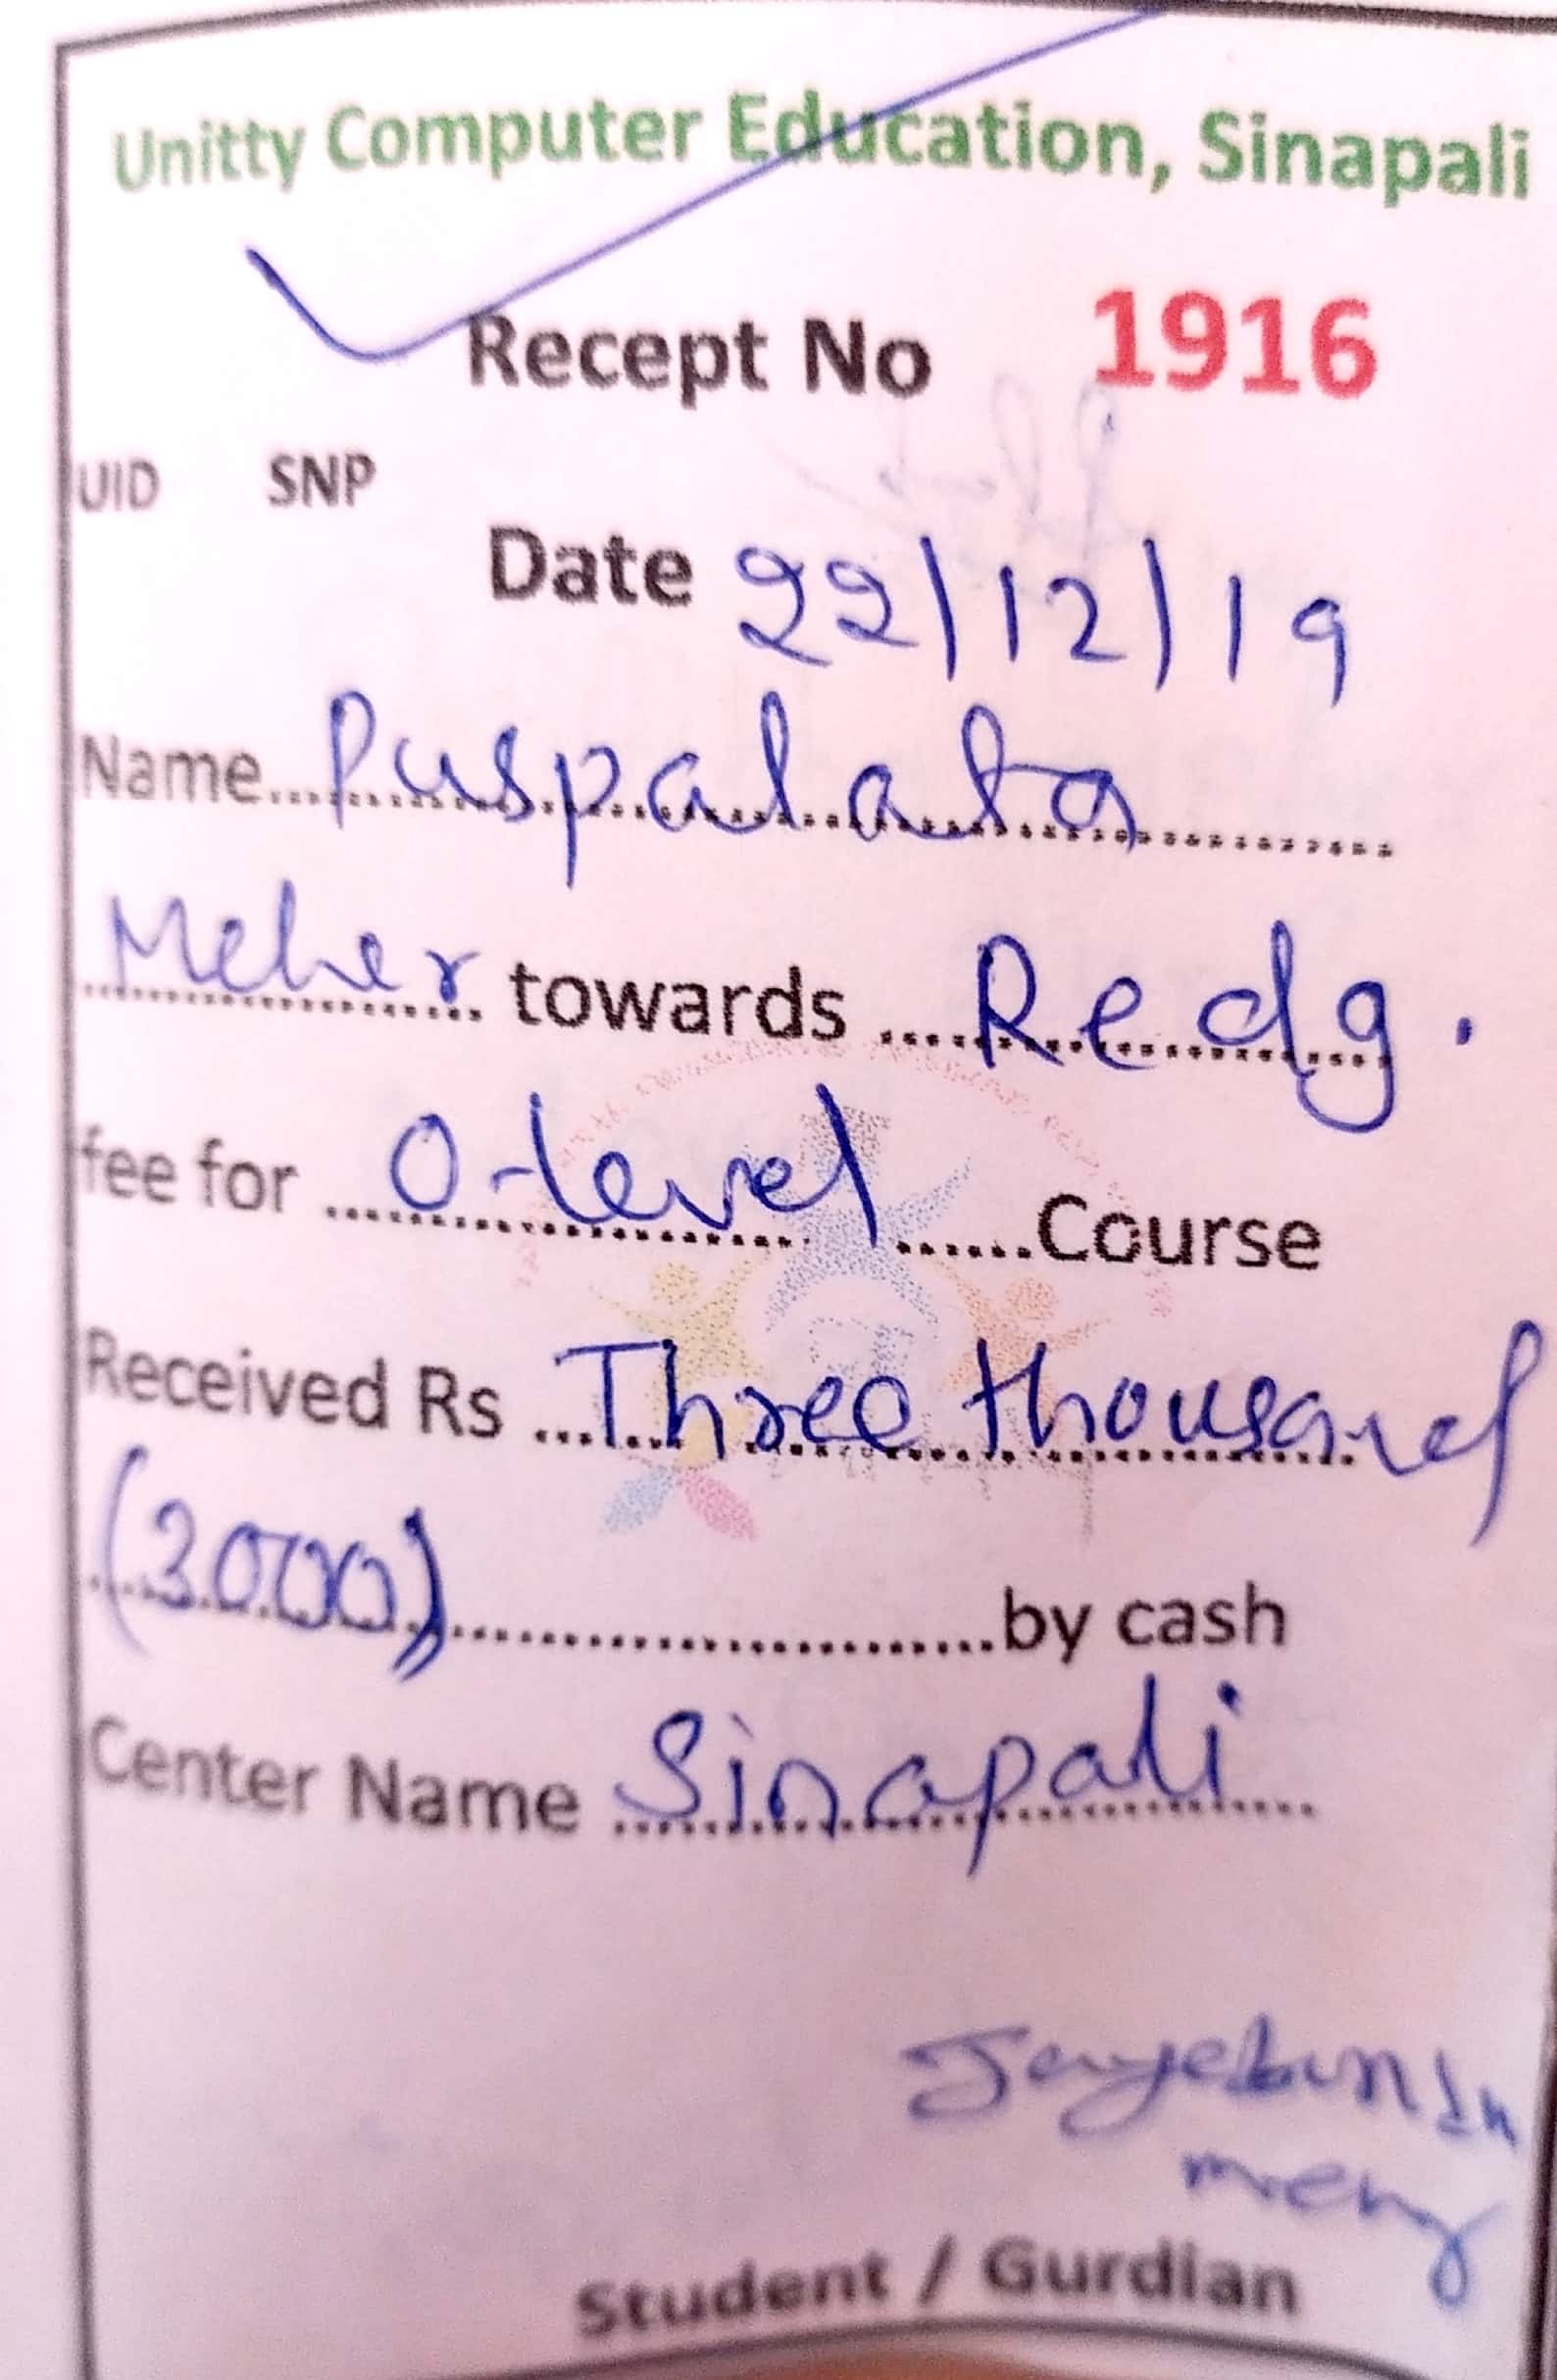 Unitty Computer Education, Sinapali
Recept No 1916
UID SNP
Date 22/12/19
Name Puspalata
Meher towards Redg.
fee for O-level Course
Received Rs Three thousand
(3000) by cash
Center Name Sinapali
Student / Gurdian